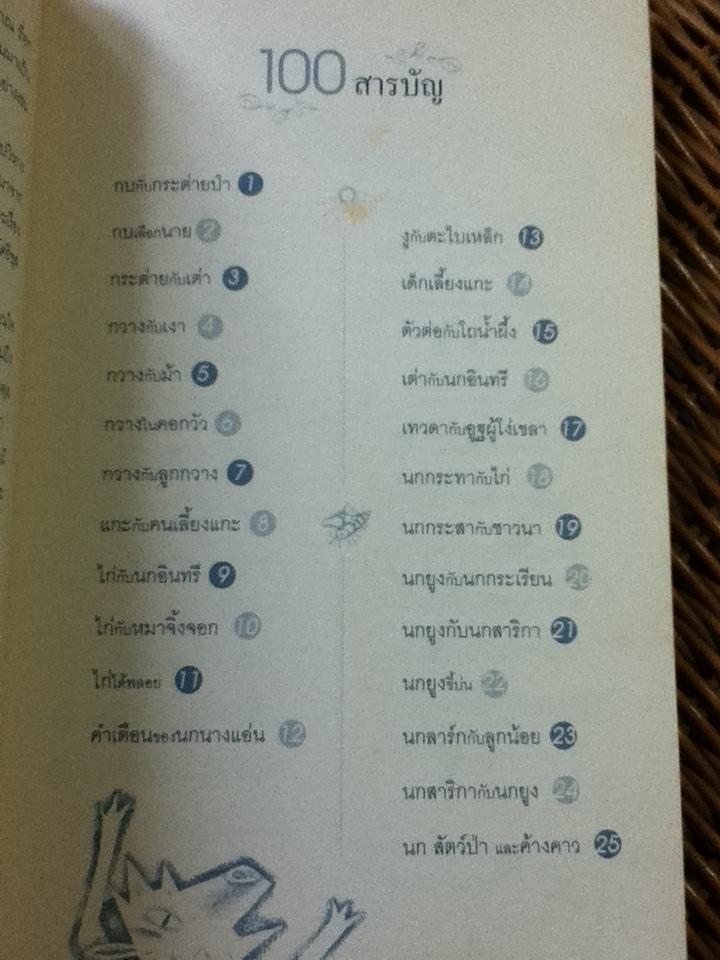 100 สารบัญ
กบกับกระต่ายป่า 1
กบเลือกนาย 2
กระต่ายกับเต่า 3
กวางกับเงา 4
กวางกับม้า 5
กวางในคอกวัว 6
กวางกับลูกกวาง 7
แกะกับคนเลี้ยงแกะ 8
ไก่กับนกอินทรี 9
ไก่กับหมาจิ้งจอก 10
ไก่ได้พลอย 11
คำเตือนของนกนางแอ่น 12
งูกับตะไบเหล็ก 13
เด็กเลี้ยงแกะ 14
ตัวต่อกับโถน้ำผึ้ง 15
เต่ากับนกอินทรี 16
เทวดากับอูฐผู้โง่เขลา 17
นกกระทากับไก่ 18
นกกระสากับชาวนา 19
นกยูงกับนกกระเรียน 20
นกยูงกับนกสาริกา 21
นกยูงขี้บ่น 22
นกลาร์กกับลูกน้อย 23
นกสาริกากับนกยูง 24
นก สัตว์ป่า และค้างคาว 25